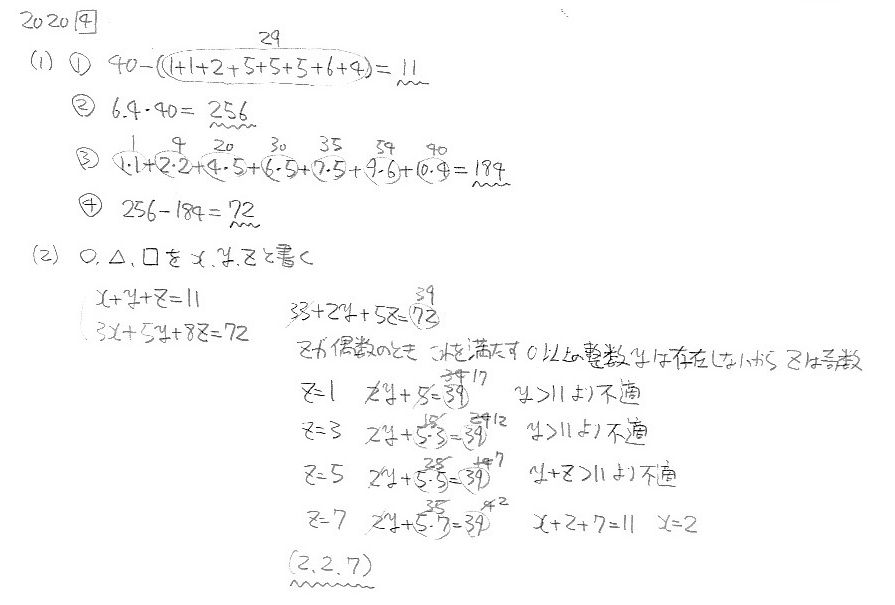 2020 4
29
(1) ① 40-(1+1+2+5+5+5+6+4)=11
② 6.4・40=256
1 4 20 30 35 54 40
③ 1・1+2・2+4・5+6・5+7・5+9・6+10・4=184
④ 256-184=72
(2) ○、△、□を x、y、zと書く
x+y+z=11
3x+5y+8z=72
39
33+2y+5z=72
zが偶数のとき これを満たす0以上の整数yは存在しないから zは奇数
34 17
z=1 2y+5=39 y>11より不適
15 24 12
z=3 2y+5・3=39 y>11より不適
25 14 7
z=5 2y+5・5=39 y+z>11より不適
35 4 2
z=7 2y+5・7=39 x+2+7=11 x=2
(2、2、7)